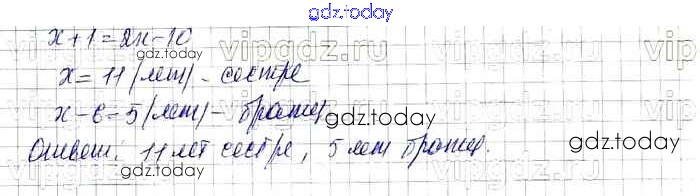 gdz.today
x+1=2x-10
vipgdz.ru
gdz.today
vip
x=11 (лет) - сестре
x-6=5 (лет) - брату
gdz.today
vipgdz.ru
vip
Ответ: 11 лет сестре, 5 лет брату.
gdz.today
gdz.today